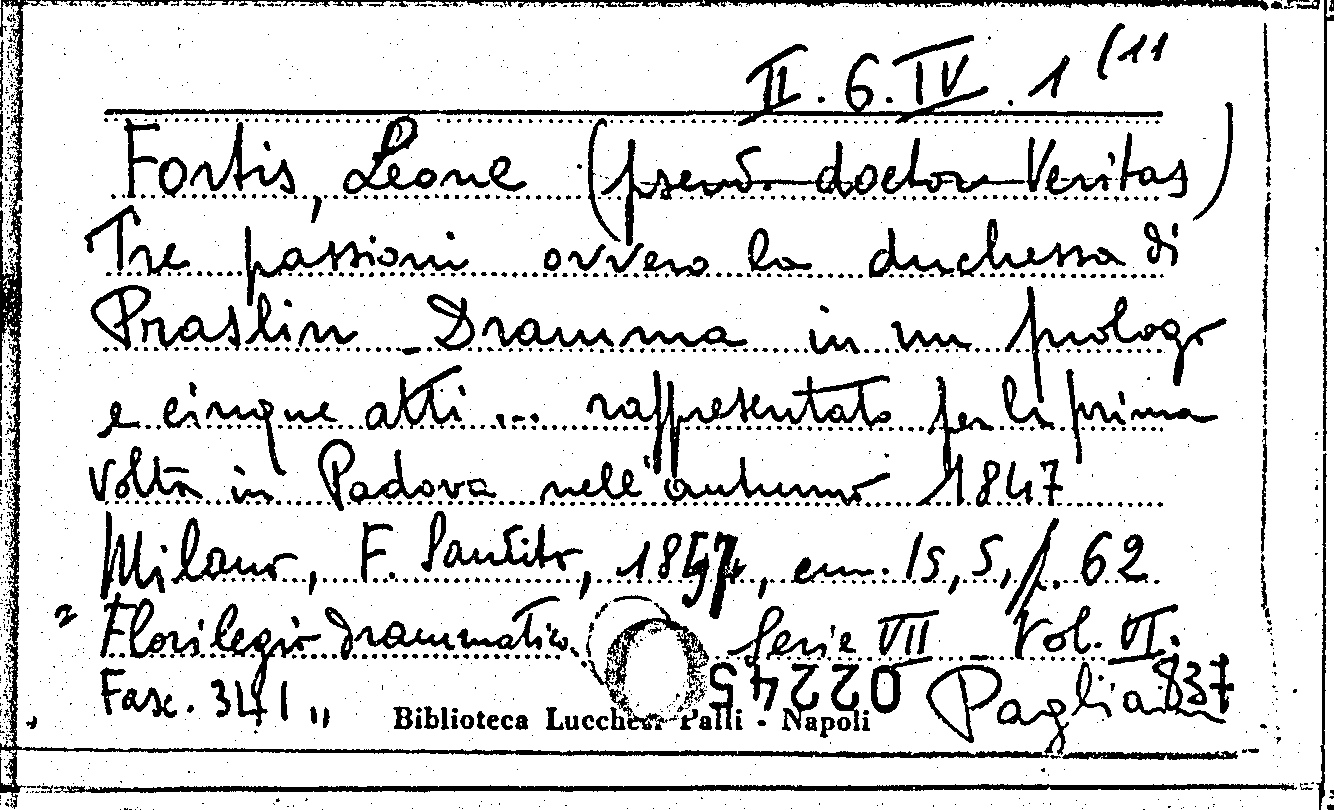 II. 6. IV. 1 (11
Fortis, Leone (pseud. doctor Veritas)
Tre passioni ovvero la duchessa di
Praslin - Dramma in un prologo
e cinque atti ... rappresentato per la prima
volta in Padova nell'autunno 1847
Milano, F. Sanvito, 1857, cm. 15,5, p. 62
" Florilegio drammatico. Serie VII - Vol. VI.
Fasc. 341 „
02245
837
Biblioteca Lucchesi Palli - Napoli